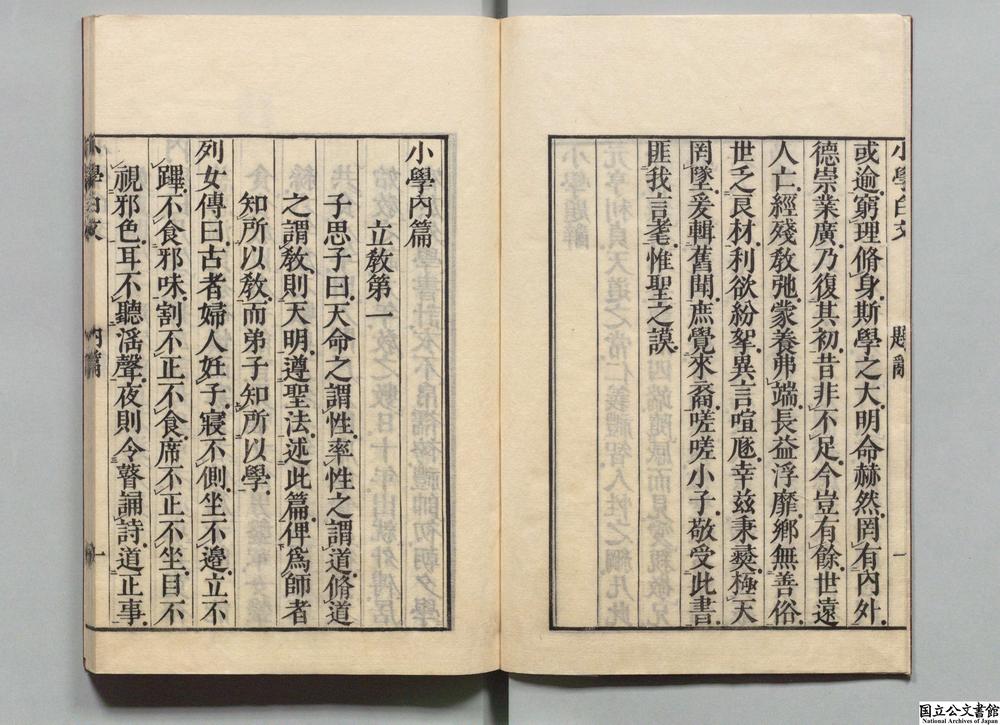 小學白文 題辭 一
或逾窮理脩身斯學之大明命赫然罔有內外
德崇業廣乃復其初昔非不足今豈有餘世遠
人亡經殘敎弛蒙養弗端長益浮靡鄕無善俗
世乏良材利欲紛挐異言喧豗幸兹秉彝極天
罔墜爰輯舊聞庶覺來裔嗟嗟小子敬受此書
匪我言耄惟聖之謨
小學內篇
立敎第一
子思子曰天命之謂性率性之謂道脩道
之謂敎則天明遵聖法述此篇俾爲師者
知所以敎而弟子知所以學
列女傳曰古者婦人妊子寢不側坐不邊立不
蹕不食邪味割不正不食席不正不坐目不
視邪色耳不聽滛聲夜則令瞽誦詩道正事
小學白文 內篇 一
国立公文書館
National Archives of Japan